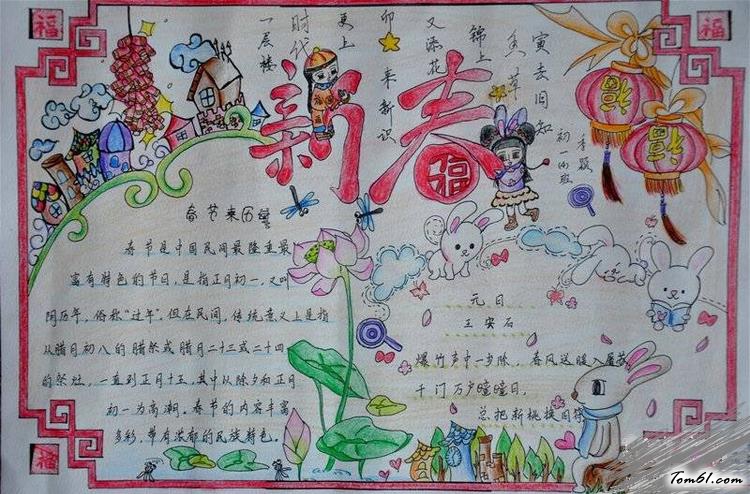 福
福
新春
福
福
福
寅去旧知
锦上
又添花
卯
来新识
更上
时代
一层楼
春节来历
春节是中国民间最隆重最
富有特色的节日，是指正月初一，又叫
阴历年，俗称“过年”。但在民间，传统意义上是指
从腊月初八的腊祭或腊月二十三或二十四
的祭灶，一直到正月十五，其中以除夕和正月
初一为高潮。春节的内容丰富
多彩，带有浓郁的民族特色。
元日
王安石
爆竹声中一岁除，春风送暖入屠苏
千门万户瞳瞳日，
总把新桃换旧符
福
Tom61.com